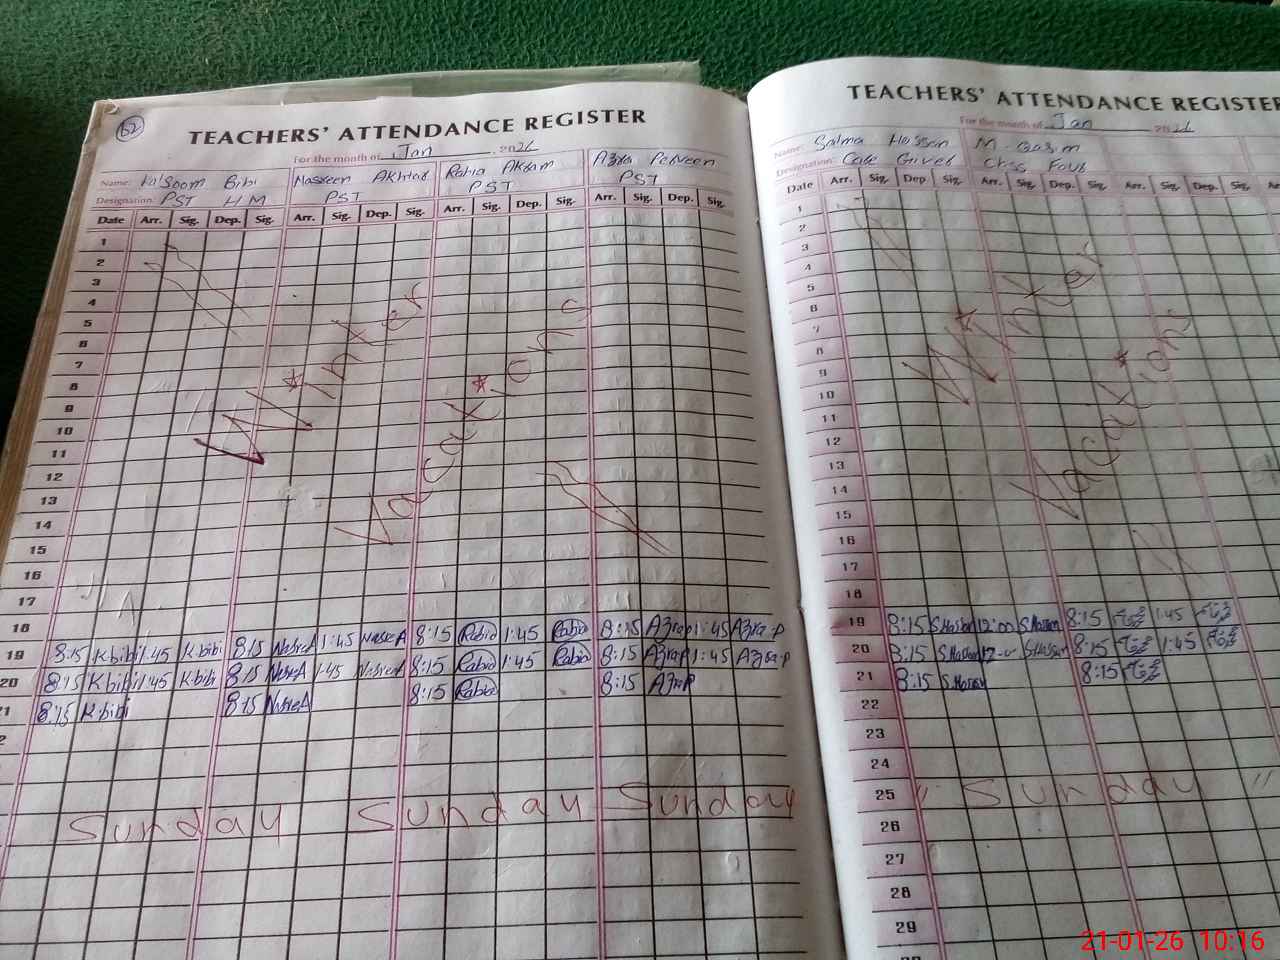 52
TEACHERS' ATTENDANCE REGISTER
For the month of Jan 2026
Name: Kalsoom Bibi Nasreen Akhtar Rabia Akram Azra Perveen
Designation: PST HM PST PST PST
Date Arr. Sig. Dep. Sig. Arr. Sig. Dep. Sig. Arr. Sig. Dep. Sig. Arr. Sig. Dep. Sig.
1
2
3
4
5
6
7
8
9
10
11
12
13
14
15
16
17
18
19 8:15 K.bibi 1:45 K.bibi 8:15 NasreA 1:45 NasreA 8:15 Rabia 1:45 Rabia 8:15 Azra.p 1:45 Azra.p
20 8:15 K.bibi 1:45 K.bibi 8:15 NasreA 1:45 NasreA 8:15 Rabia 1:45 Rabia 8:15 Azra.p 1:45 Azra.p
21 8:15 K.bibi 8:15 NasreA 8:15 Rabia 8:15 Azra.p
Winter
Vacations
Sunday Sunday Sunday
TEACHERS' ATTENDANCE REGISTER
For the month of Jan 2026
Name: Salma Hassan M. Qasim
Designation: Care Giver Class Four
Date Arr. Sig. Dep Sig. Arr. Sig. Dep. Sig. Arr. Sig. Dep. Sig.
1
2
3
4
5
6
7
8
9
10
11
12
13
14
15
16
17
18
19 8:15 S.Hassan 12:00 S.Hassan 8:15 1:45
20 8:15 S.Hassan 12:00 S.Hassan 8:15 1:45
21 8:15 S.Hassan 8:15
22
23
24
25 " Sunday "
26
27
28
29
Winter
Vacations
21-01-26 10:16